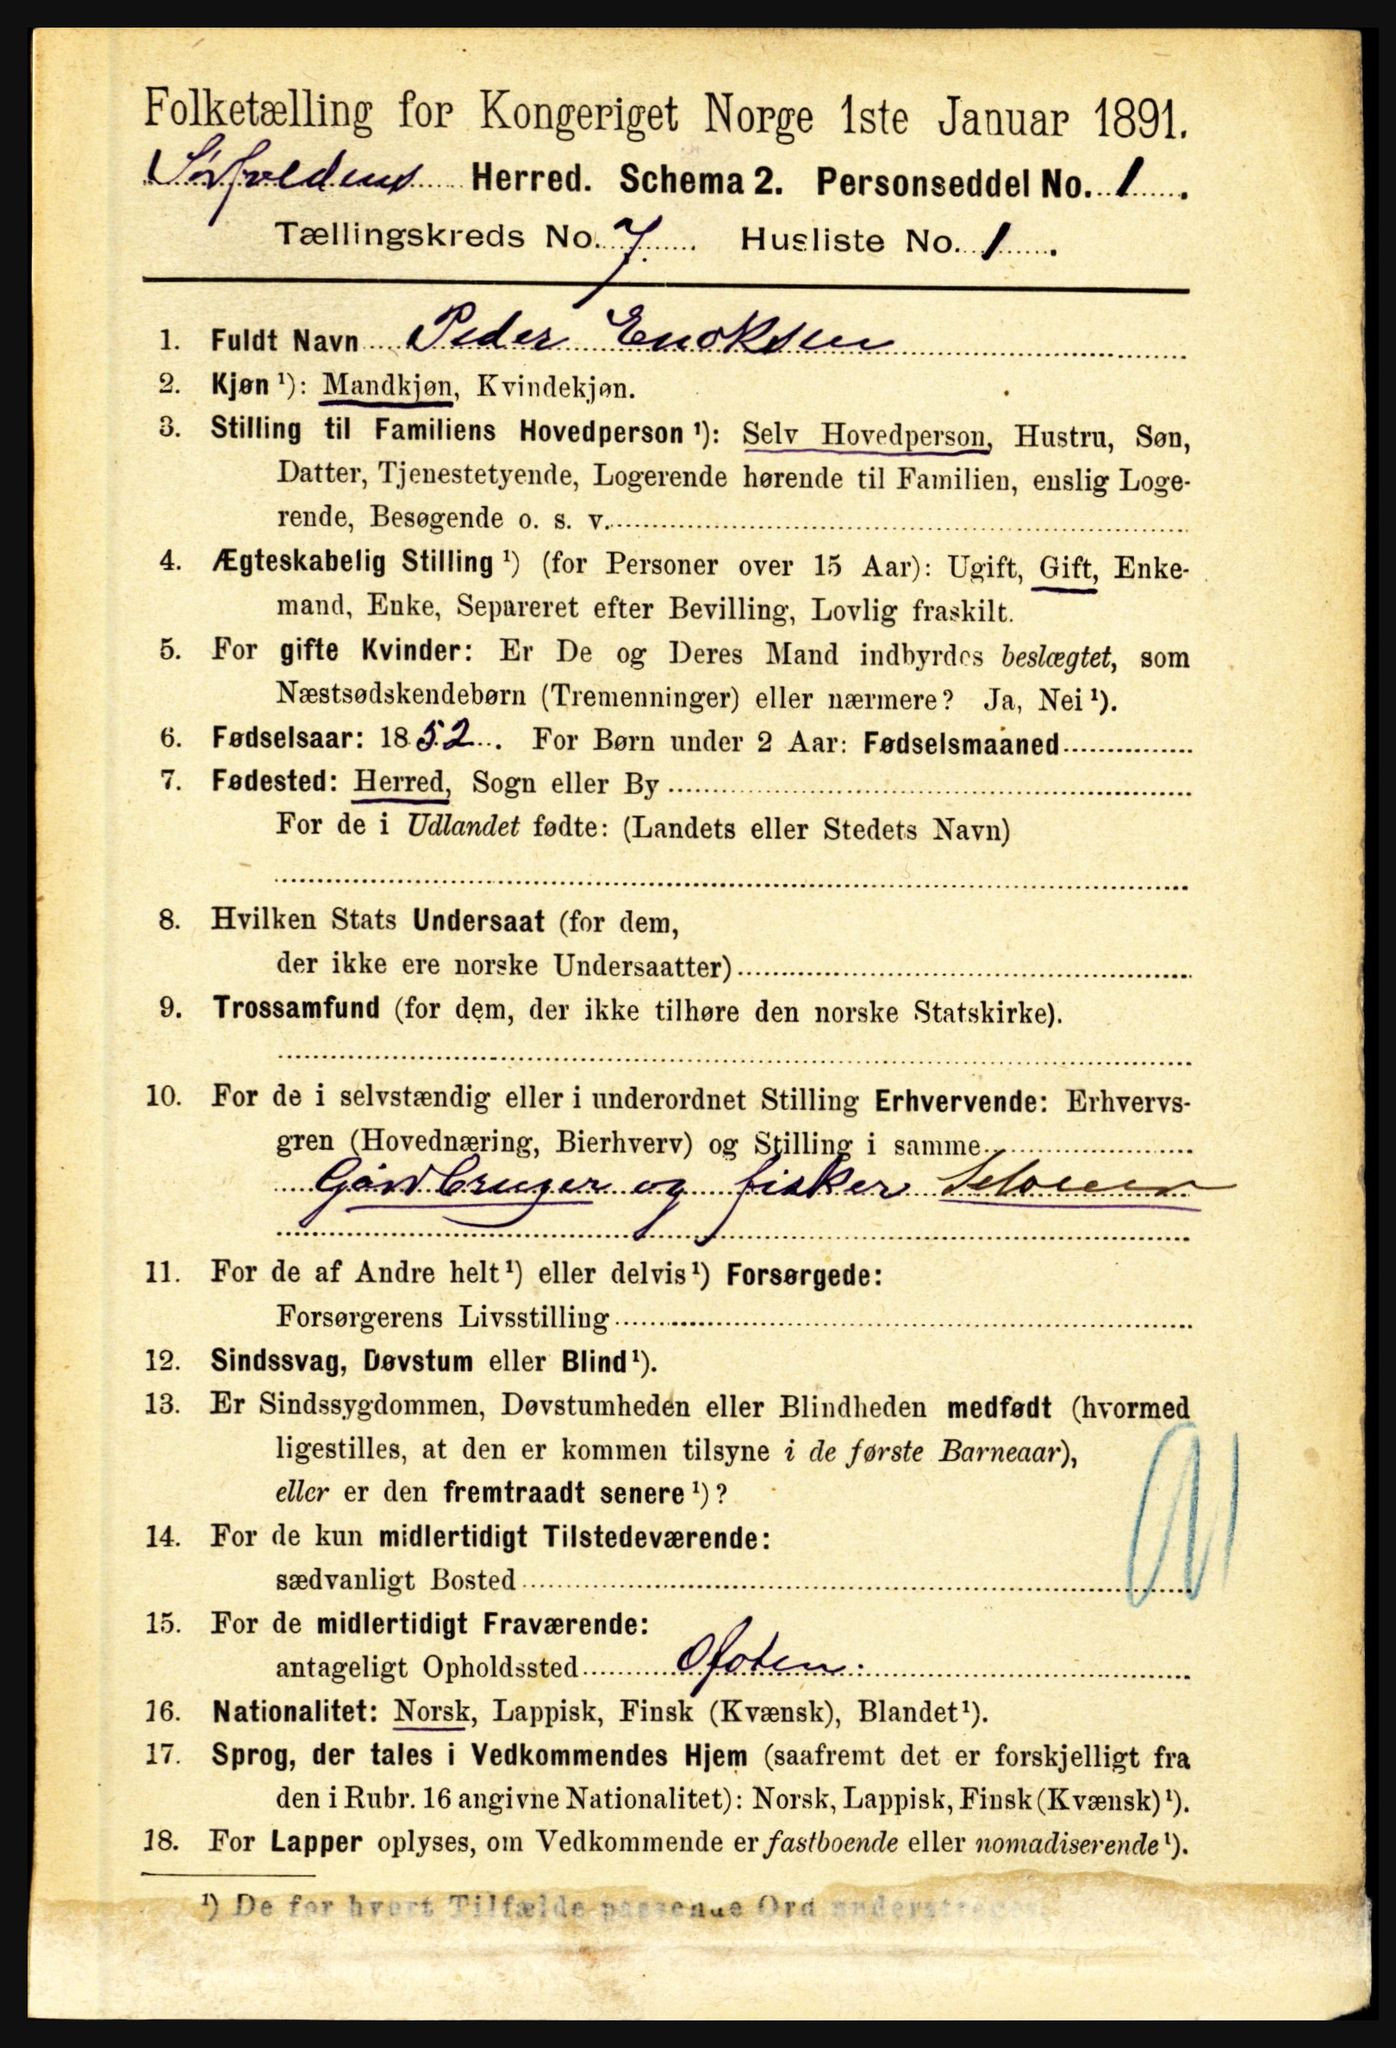 Folketælling for Kongeriget Norge 1ste Januar 1891.
Sørfoldens Herred. Schema 2. Personseddel No. 1.
Tællingskreds No. 7. Husliste No. 1.
1. Fuldt Navn Peder Enoksen
2. Kjøn ¹): Mandkjøn, Kvindekjøn.
3. Stilling til Familiens Hovedperson ¹): Selv Hovedperson, Hustru, Søn,
Datter, Tjenestetyende, Logerende hørende til Familien, enslig Loge-
rende, Besøgende o. s. v.
4. Ægteskabelig Stilling ¹) (for Personer over 15 Aar): Ugift, Gift, Enke-
mand, Enke, Separeret efter Bevilling, Lovlig fraskilt.
5. For gifte Kvinder: Er De og Deres Mand indbyrdes beslægtet, som
Næstsødskendebørn (Tremenninger) eller nærmere? Ja, Nei ¹).
6. Fødselsaar: 1852. For Børn under 2 Aar: Fødselsmaaned
7. Fødested: Herred, Sogn eller By
For de i Udlandet fødte: (Landets eller Stedets Navn)
8. Hvilken Stats Undersaat (for dem,
der ikke ere norske Undersaatter)
9. Trossamfund (for dem, der ikke tilhøre den norske Statskirke).
10. For de i selvstændig eller i underordnet Stilling Erhvervende: Erhvervs-
gren (Hovednæring, Bierhverv) og Stilling i samme
Gårdbruger og fisker Selveier
11. For de af Andre helt ¹) eller delvis ¹) Forsørgede:
Forsørgerens Livsstilling
12. Sindssvag, Døvstum eller Blind ¹).
13. Er Sindssygdommen, Døvstumheden eller Blindheden medfødt (hvormed
ligestilles, at den er kommen tilsyne i de første Barneaar),
eller er den fremtraadt senere ¹)?
14. For de kun midlertidigt Tilstedeværende:
sædvanligt Bosted
15. For de midlertidigt Fraværende:
antageligt Opholdssted Ofoten.
16. Nationalitet: Norsk, Lappisk, Finsk (Kvænsk), Blandet ¹).
17. Sprog, der tales i Vedkommendes Hjem (saafremt det er forskjelligt fra
den i Rubr. 16 angivne Nationalitet): Norsk, Lappisk, Finsk (Kvænsk) ¹).
18. For Lapper oplyses, om Vedkommende er fastboende eller nomadiserende ¹).
¹) De for hvert Tilfælde passende Ord understreges